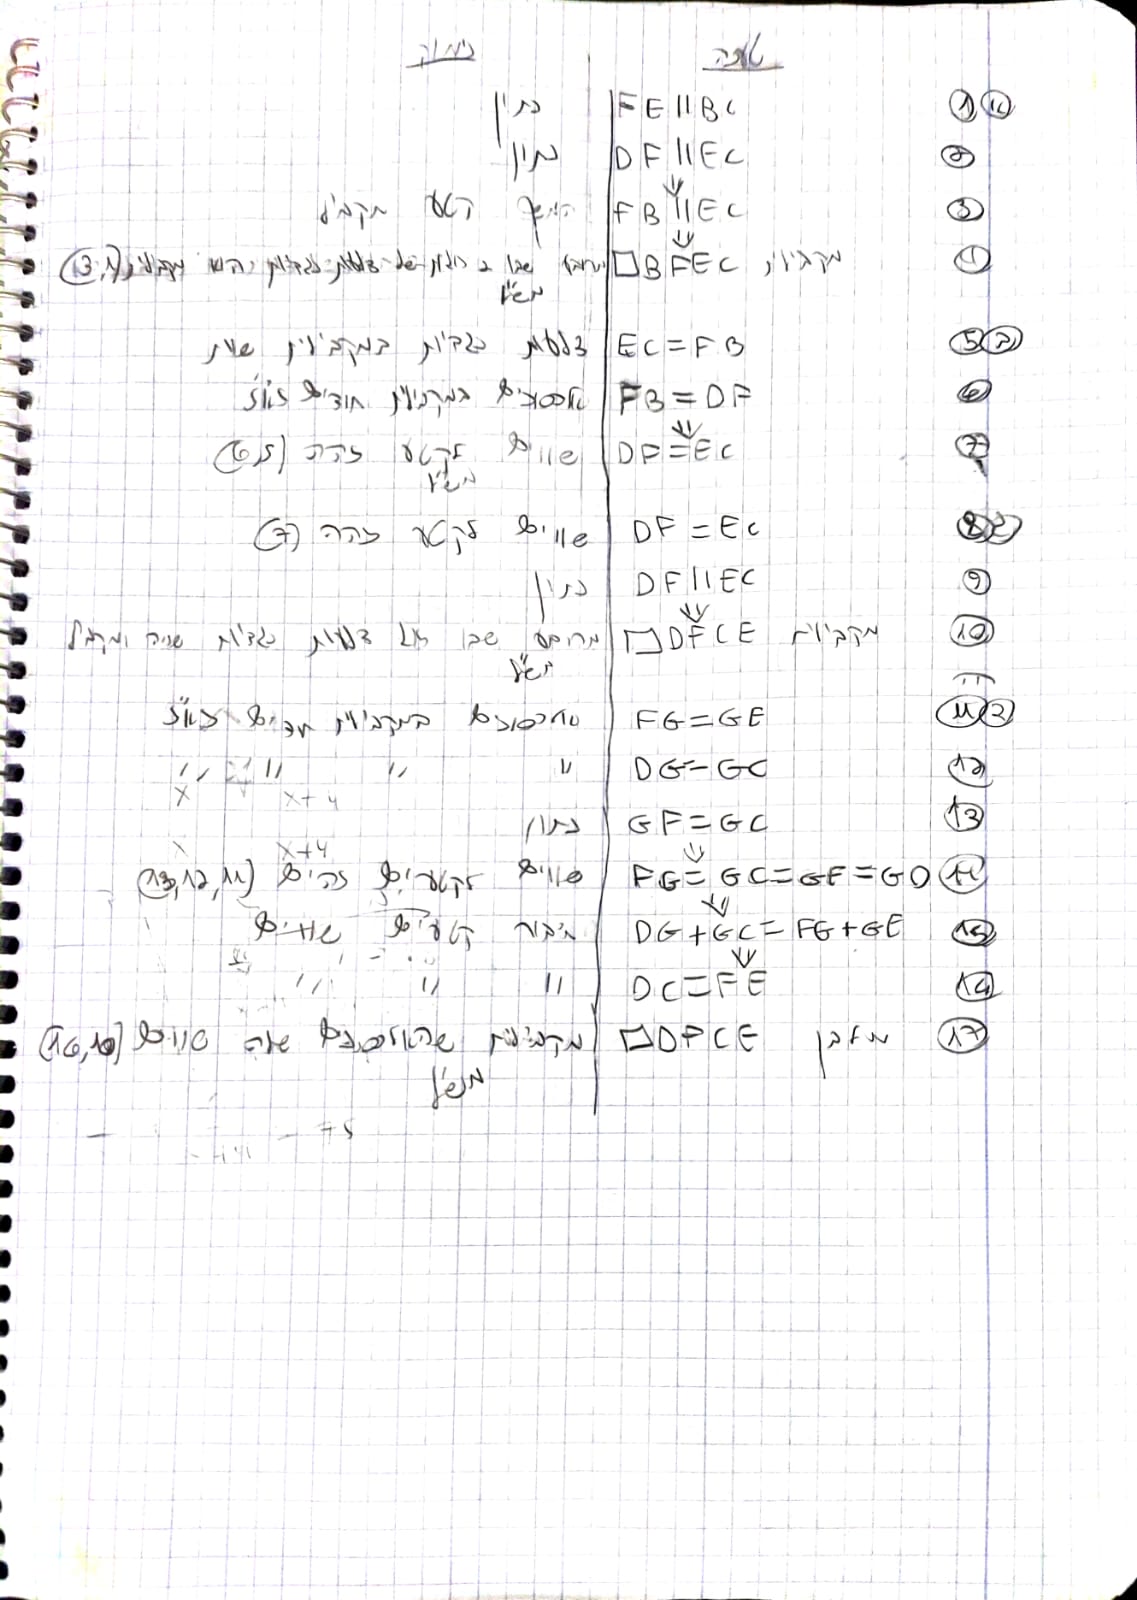 טענה נימוק
① א FE || BC נתון
② DF || EC נתון
③ FB || EC המשך קטע מקביל
④ מקבילית □BFEC מרובע שבו 2 זוגות של צלעות נגדיות מקבילות (3,1)
מש"ל
⑤ ב EC = FB צלעות נגדיות במקבילית שוות
⑥ FB = DF אלכסונים במקבילית חוצים זא"ז
⑦ DF = EC שווים לקטע זהה (6,5)
מש"ל
⑧ DF = EC שווים לקטע זהה (7)
⑨ DF || EC נתון
⑩ מקבילית □DFCE מרובע שבו זוג צלעות נגדיות שווה ומקביל
מש"ל
⑪ FG = GE אלכסונים במקבילית חוצים זא"ז
⑫ DG = GC " " " "
x x+4
⑬ GF = GC נתון
x x+4
⑭ FG = GC = GE = GD שווים לקטעים זהים (13,12,11)
⑮ DG + GC = FG + GE חיבור קטעים שווים
⑯ DC = FE " " "
⑰ מלבן □DFCE מקבילית שהאלכסונים שלה שווים (16,10)
מש"ל